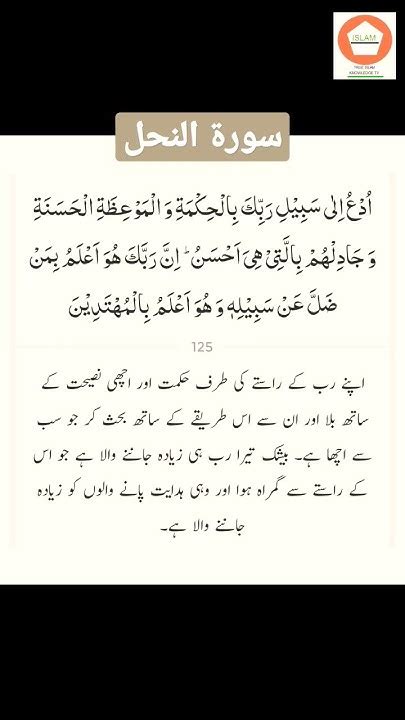 ISLAM
TRUE ISLAM
KNOWLEDGE TV
سورة النحل
اُدْعُ اِلٰى سَبِيْلِ رَبِّكَ بِالْحِكْمَةِ وَ الْمَوْعِظَةِ الْحَسَنَةِ
وَ جَادِلْهُمْ بِالَّتِيْ هِيَ اَحْسَنُؕ اِنَّ رَبَّكَ هُوَ اَعْلَمُ بِمَنْ
ضَلَّ عَنْ سَبِيْلِهٖ وَ هُوَ اَعْلَمُ بِالْمُهْتَدِيْنَ
125
اپنے رب کے راستے کی طرف حکمت اور اچھی نصیحت کے
ساتھ بلا اور ان سے اس طریقے کے ساتھ بحث کر جو سب
سے اچھا ہے۔ بیشک تیرا رب ہی زیادہ جاننے والا ہے جو اس
کے راستے سے گمراہ ہوا اور وہی ہدایت پانے والوں کو زیادہ
جاننے والا ہے۔